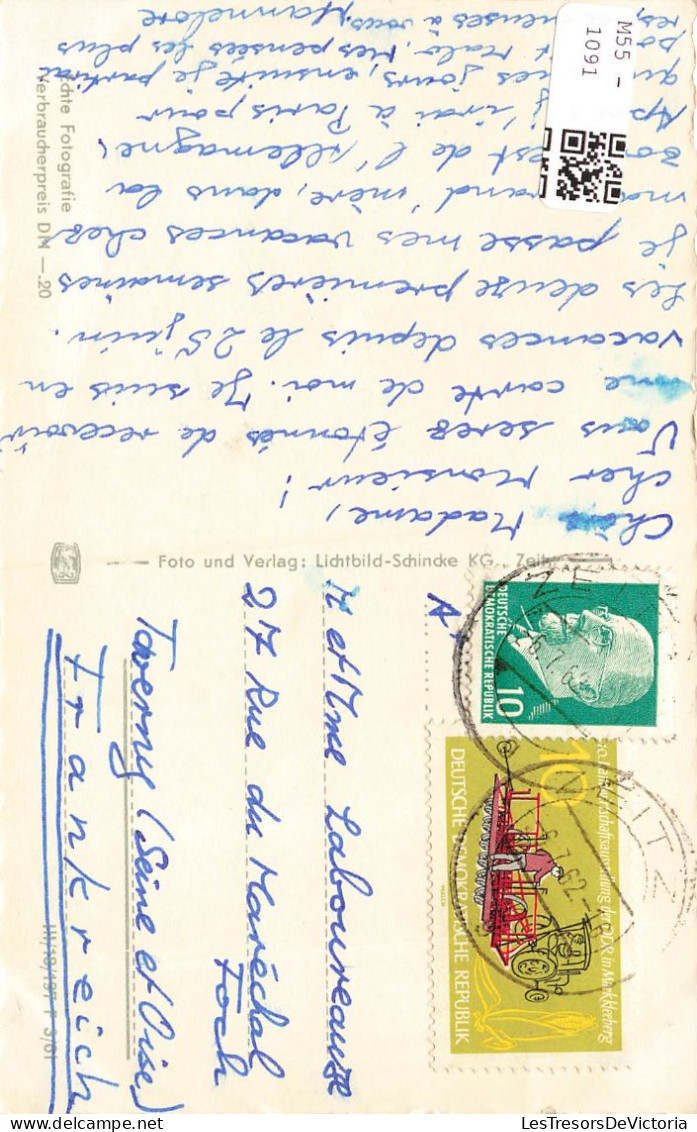 Chère Madame,
cher Monsieur!
Vous serez étonnés de recevoir
une carte de moi. Je suis en
vacances depuis le 25 juin.
Les deux premières semaines
je passe mes vacances chez
ma grand'mère, dans la
zone est de l'Allemagne.
j'irai à Paris pour
jours, ensuite je partirai
Mes pensées les plus
à vous, Hannelore
Echte Fotografie
Verbraucherpreis DM —.20
Foto und Verlag: Lichtbild-Schincke KG., Zeitz
M et Mme Laboureause
27 Rue du Maréchal
Foch
Taverny (Seine et Oise)
Frankreich
III/18/197 P 3/61
DEUTSCHE
DEMOKRATISCHE REPUBLIK
10
10
10. Landwirtschaftsausstellung der DDR in Markkleeberg
DEUTSCHE DEMOKRATISCHE REPUBLIK
ZEITZ
M55 -
1091
LesTresorsDeVictoria